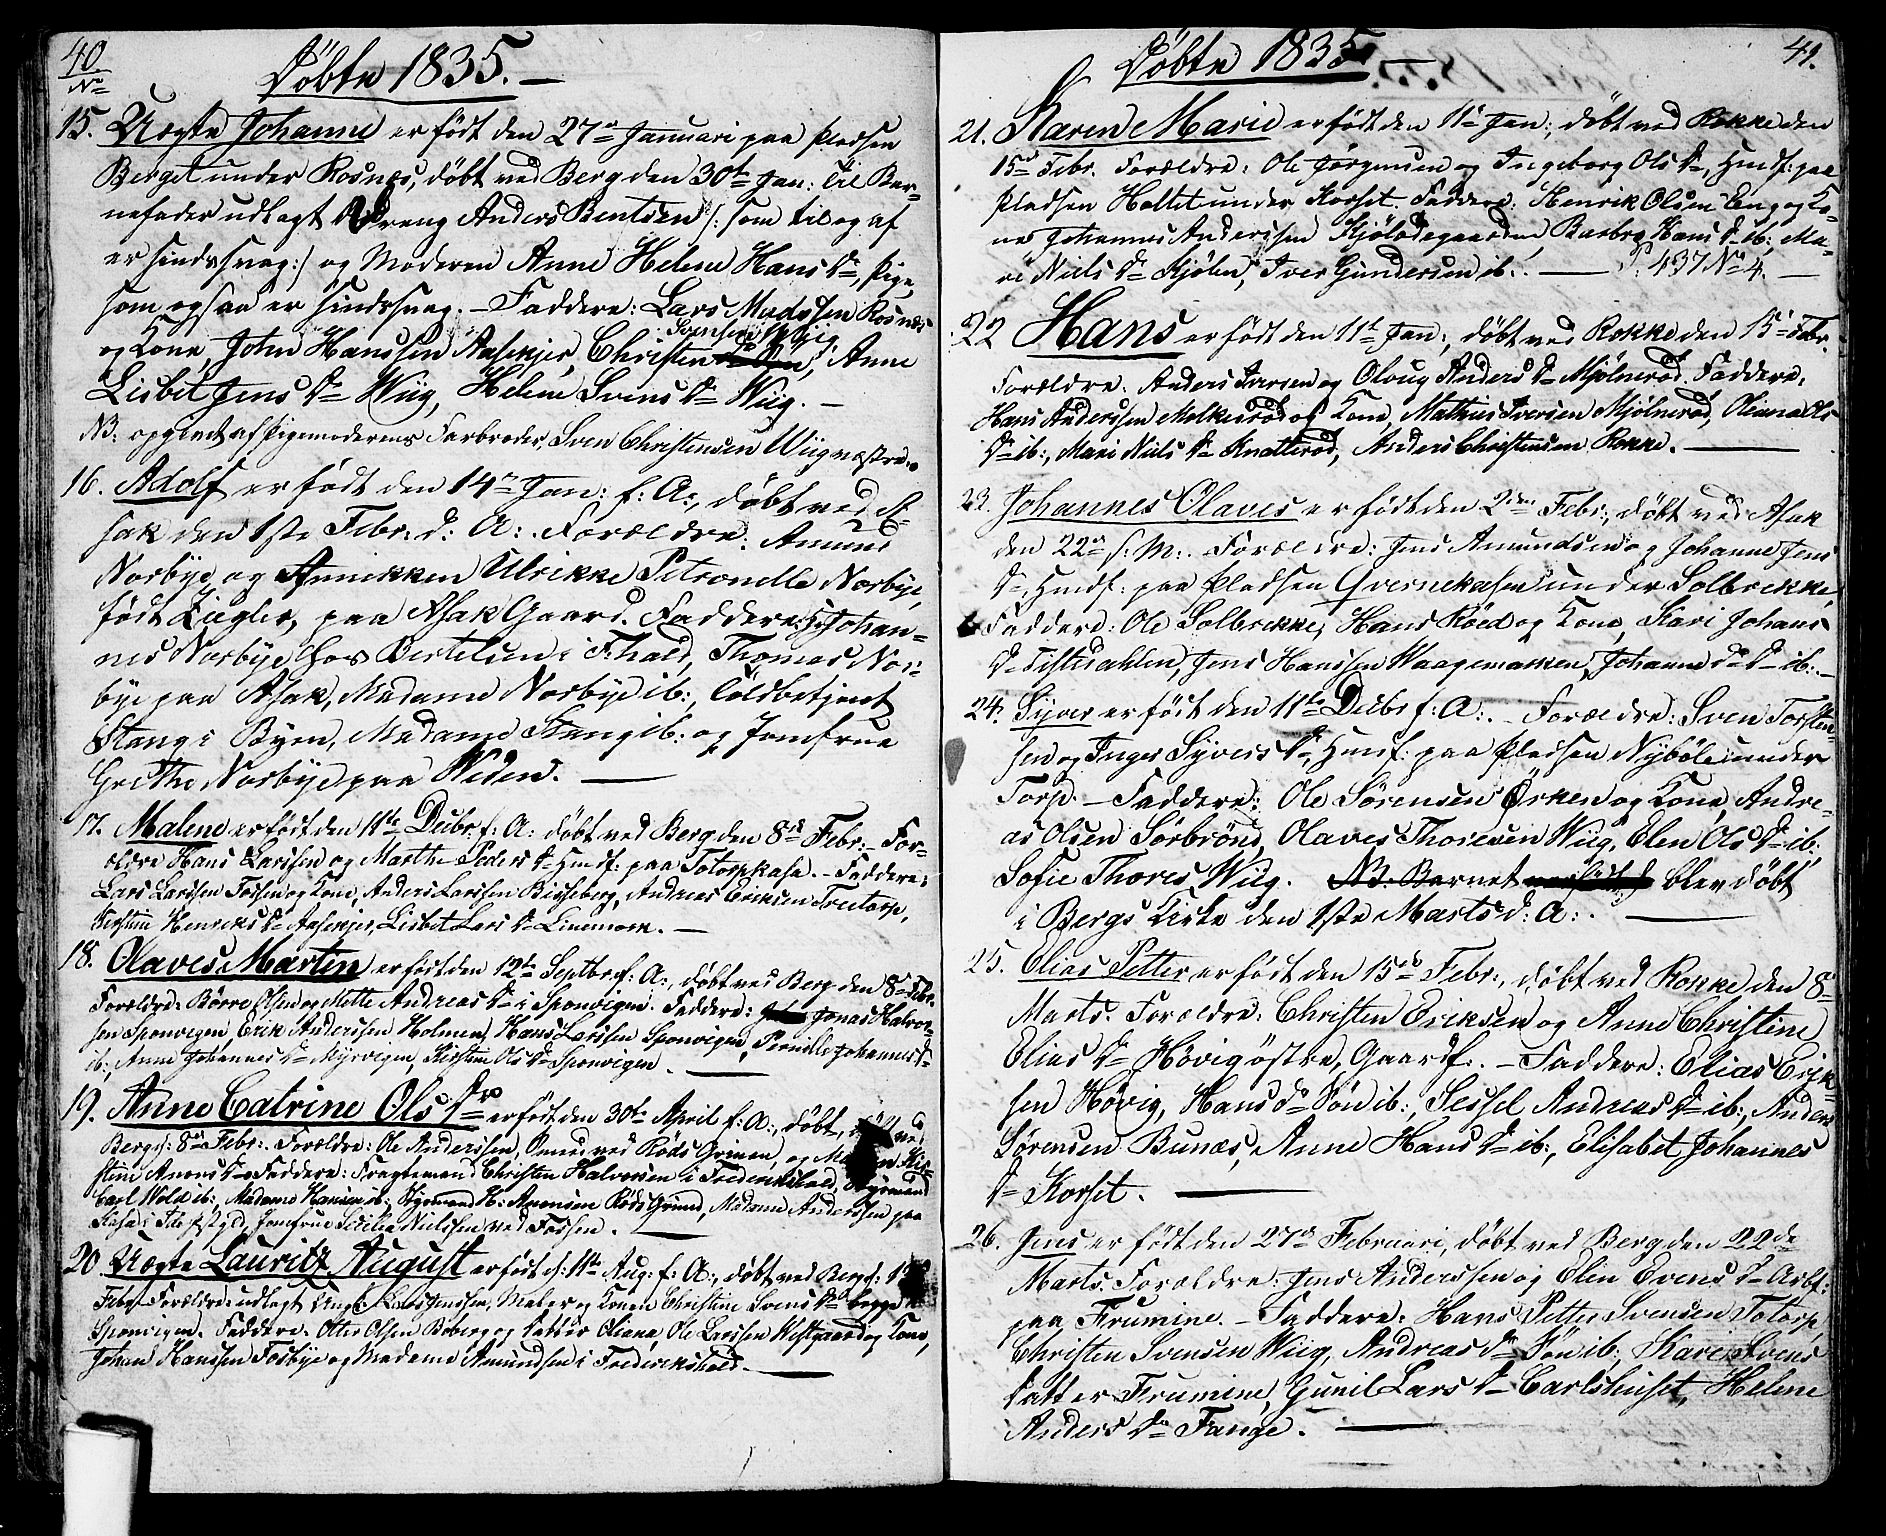 40
No
Döbte 1835. —
15. Uægte Johanne er født den 27de Januari paa Pladsen
Berget under Rosnæs, döbt ved Berg den 30te Jan: Til Bar-
nefader udlagt Dreng Anders Bentsen /: som til og af
er sindssvag :/ og Moderen Anne Helene Hans Dr, Pige,
som ogsaa er sindssvag. — Faddere: Lars Madssen Rosnæs
og Kone, John Hanssen Aasekjer, Christen Svensen Wiig, Anne
Lisbet Jens Dr Wiig, Helene Svens Dr Wiig. —
NB: opgivet af Pigemoderens Farbroder, Sven Christensen Wiig vestre.
16. Adolf er født den 14de Jan: f: A:, döbt ved A-
sak den 1ste Febr: d: A: Forældre: Amund
Norbye og Annikken Ulrikke Petronelle Norbye,
født Ziegler, paa Asak Gaard. Faddere: Hr Johan-
nes Norbye hos Bertelsen i Fr:hald, Thomas Nor-
bye paa Asak, Madame Norbye ib:, Toldbetjent
Stang i Byen, Madame Stang ib: og Jomfrue
Grethe Norbye paa Weden. —
17. Malene er født den 11te Decbr: f: A: döbt ved Berg den 8de Febr: — For-
ældre Hans Larssen og Marthe Peders Dr Huusf: paa Totorpkasa. — Faddere:
Lars Larssen Fossen og Kone, Anders Larssen Bisseberg, Andreas Eriksen Tretorp,
Kirstine Henriks Dr Aasekjer, Lisbet Lars Dr Linemork. —
18. Olaves Martin er født den 12te Septbr f: A:, döbt ved Berg den 8de Febr.
Forældre: Börre Olsen og Mette Andreas Dr i Sponvigen. Faddere: Jonas Halvor-
sen Sponvigen, Erik Anderssen Holmen, Hans Larssen Sponvigen, Pernille Johannes Dr
ib:, Anne Johannes Dr Myrvigen, Kirstine Ols Dr Sponvigen. —
19. Anne Catrine Ols Dr er født den 30te April f: A:, döbt ved
Berg d: 8de Febr:. Forældre: Ole Anderssen, Smed ved Röds Grinen, og Kir-
stine Amons Dr. Faddere: Fragtemand Christen Halvorsen i Frederikshald, Styrmand
Carl Wold ib:, Madame Hansen ib: Styrmand H: Amonsen Röds Grind, Madame Anderssen paa
Kasa i Ide P.gjeld, Jomfrue Sicilia Nielssen ved Fossen. —
20. Uægte Lauritz August er født d: 11te Aug: f: A:, döbt ved Berg d: 15de
Febr Forældre: udlagt Ungk. Lars Jenssen, Maler og Konen Christine Svens Dr begge i
Sponvigen. Faddere: Otter Olsen Böberg og Datter Oliana, Ole Larssen Westgaard og Kone,
Johan Hanssen Fosbye og Madame Amundsen i Frederikshald. —
41.
Döbte 1835. —
21. Karen Marie er født den 11te Jan:, döbt ved Rokke den
15de Febr. Forældre: Ole Jörgensen og Ingeborg Ols Dr, Huusf: paa
Pladsen Holtet under Korset. Faddere: Henrik Olsen Eng og Ko-
ne Johannes Anderssen Kjölödegaarden Barbro Hans Dr ib:, Ma-
ri Niels Dr Kjölen, Iver Gundersen ib:. — P. 437 No 4. —
22 Hans er født den 11te Jan:, döbt ved Rokke den 15de Febr.
Forældre: Anders Iversen og Oloug Anders Dr Mjölneröd. Faddere:
Hans Anderssen Melkeröd og Kone, Mathias Iversen Mjölneröd, Oliana Ols
Dr ib:, Mari Niels Dr Knatteröd, Anders Christensen Rokke. —
23. Johannes Olaves er født den 2den Febr:, döbt ved Asak
den 22de s: M:. Forældre: Jens Amundsen og Johanne Jens
Dr, Huusf: paa Pladsen Qvernekasen under Solbrekke,
Faddere: Ole Solbrekke, Hans Röed og Kone, Kari Johans
Dr Tistedahlen, Jens Hanssen Waagemarken, Johanne do Dr ib: —
24. Syver er født den 11te Decbr f: A:. — Forældre: Sven Torsten-
sen og Inger Syvers Dr, Huusf: paa Pladsen Nyböle under
Torp. — Faddere: Ole Sörensen Örken og Kone, Andre-
as Olsen Sörbröne, Olaves Thoresen Wiig, Elen Ols Dr ib:,
Sofie Thores Wiig. NB. Barnet blev döbt
i Bergs Kirke den 1ste Marts d: A:. —
25. Elias Petter er født den 15de Febr:, döbt ved Rokke den 8de
Marts. Forældre: Christen Eriksen og Anne Christine
Elias Dr Hövig östre, Gaardf:. — Faddere: Elias Erik-
sen Hövig, Hans do Sön ib:, Sessel Andreas Dr ib:, Anders
Sörensen Bunæs, Anne Hans Dr ib:, Elisabet Johannes
Dr Korset. —
26. Jens er født den 27de Februari, döbt ved Berg den 22de
Marts. Forældre: Jens Anderssen og Elen Evens Dr Arbf:
paa Frumine. — Faddere: Hans Petter Svensen Totorp,
Christen Svensen Wiig, Andreas do Sön ib:, Kari Svens
Datter Frumine, Gunil Lars Dr Carlshuset, Helene
Anders Dr Fange. —